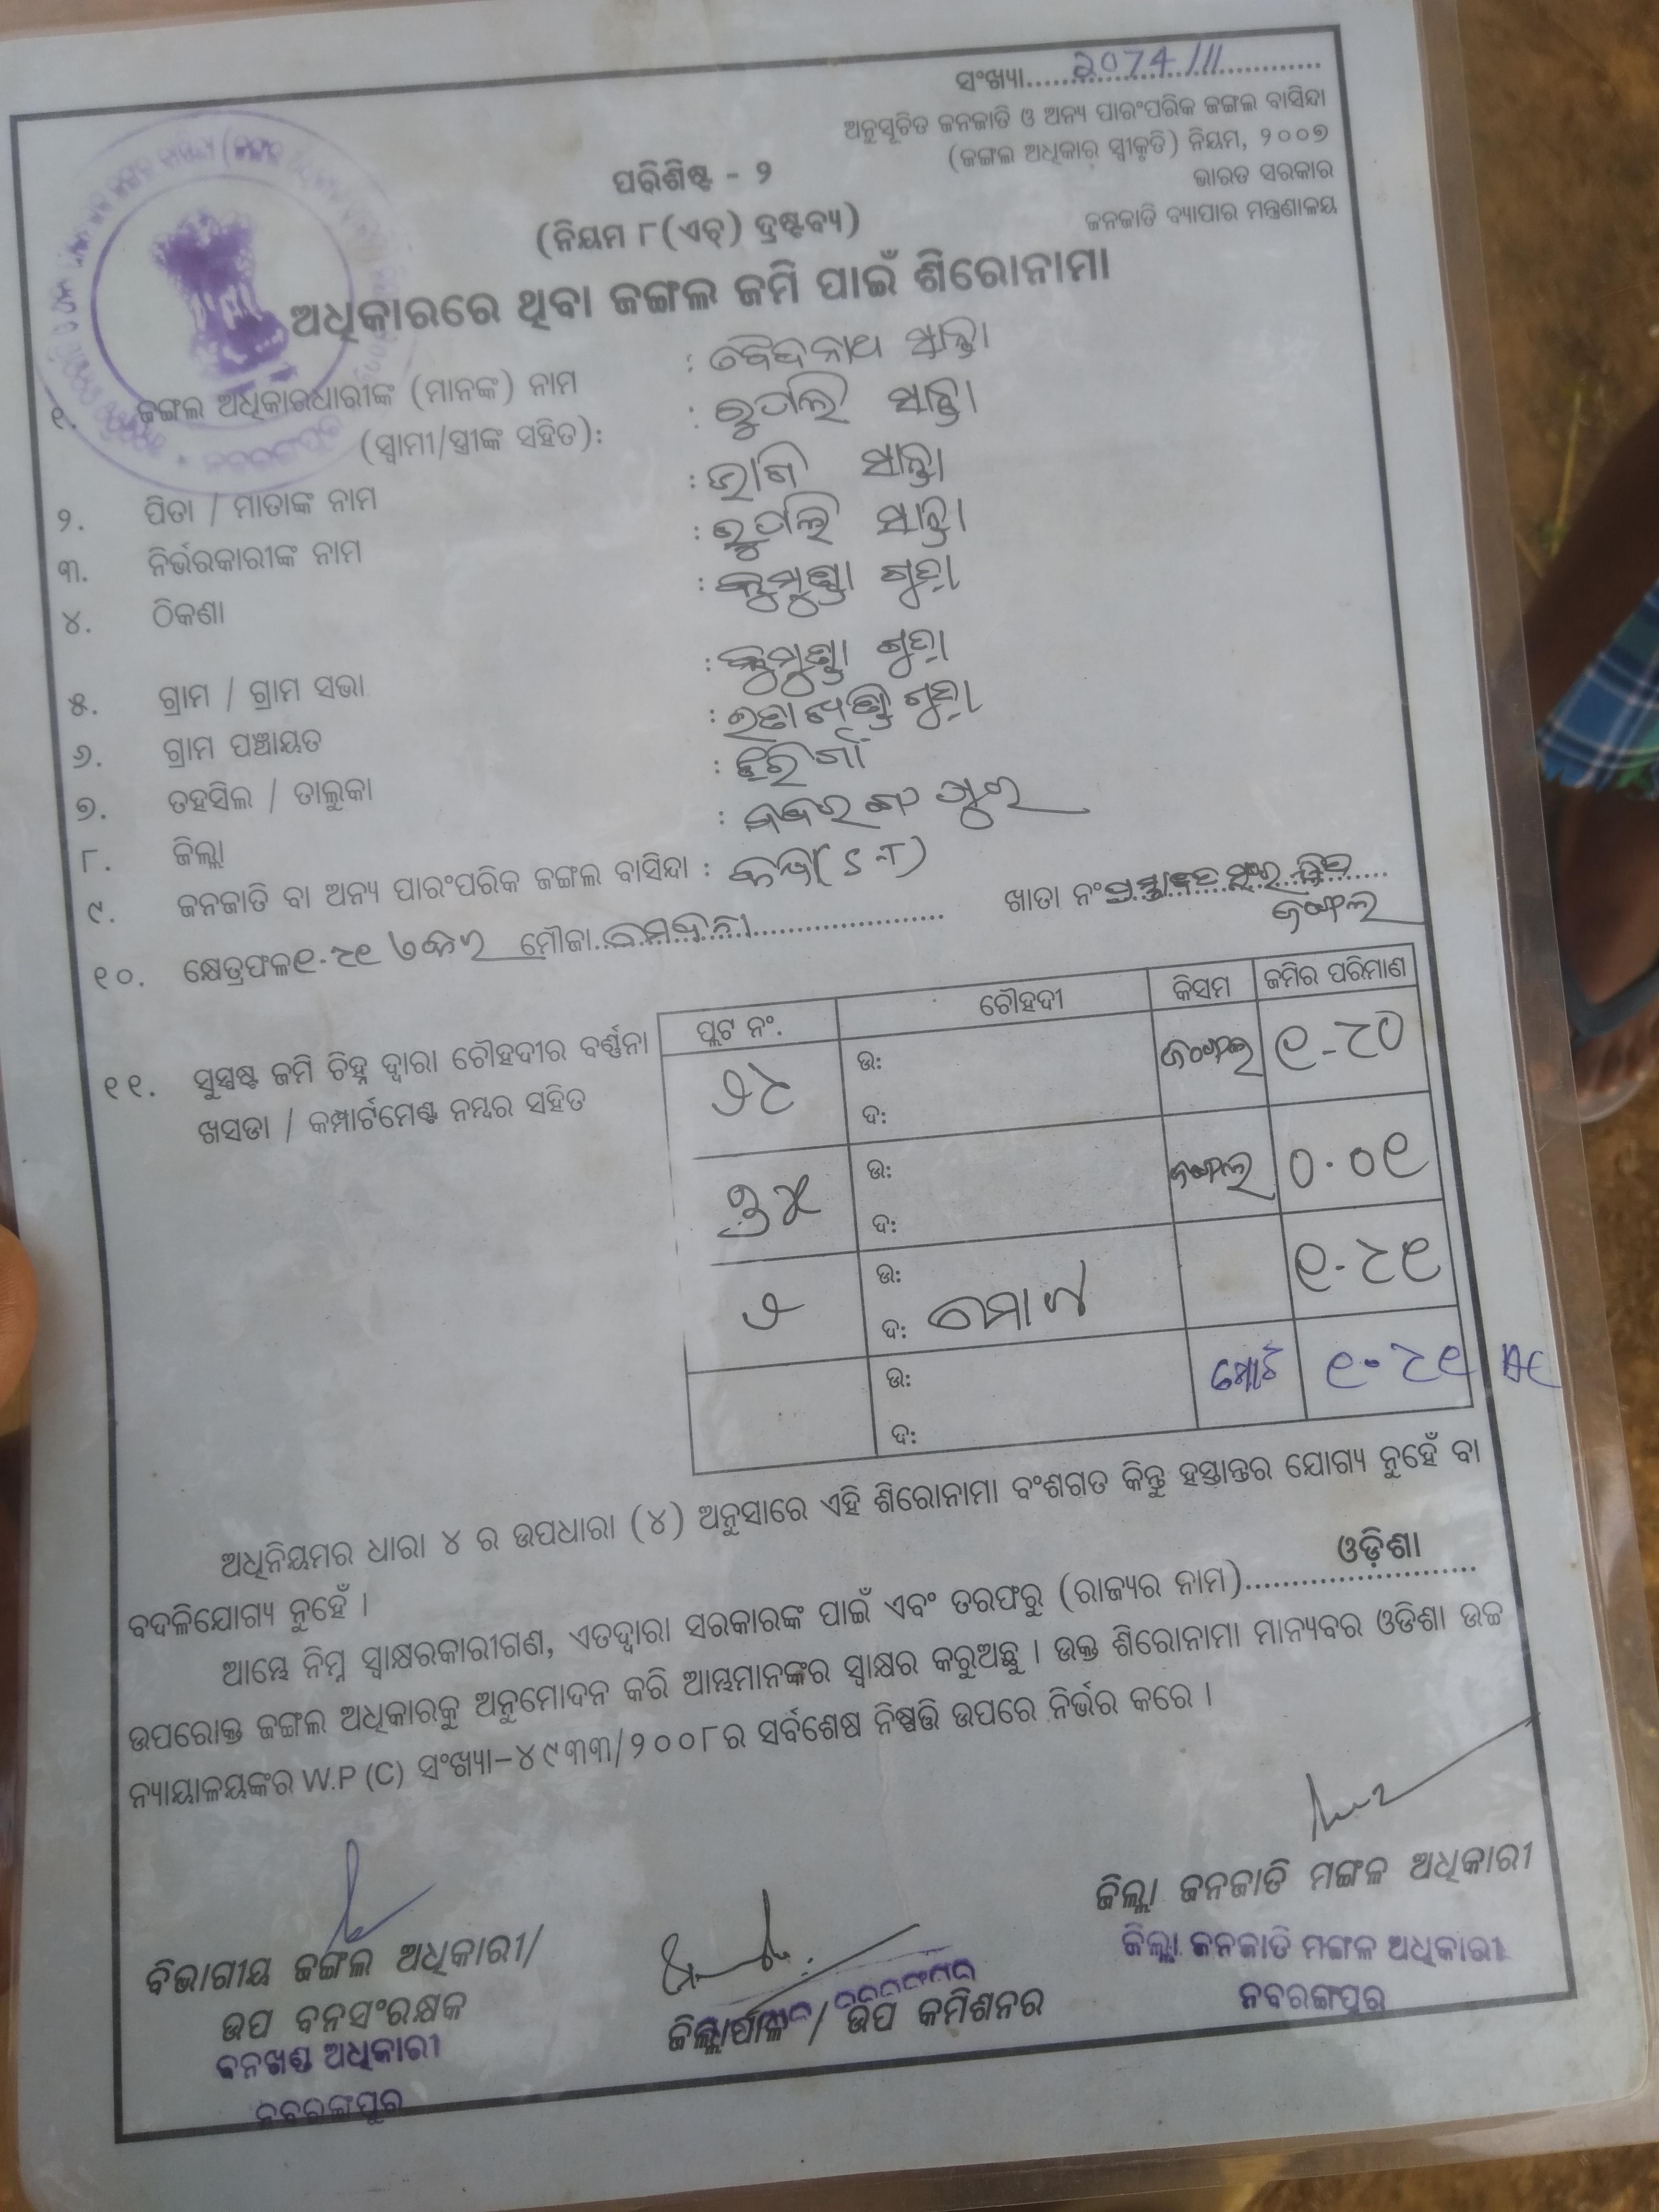 ସଂଖ୍ୟା.... ୨074/III
ଅନୁସୂଚିତ ଜନଜାତି ଓ ଅନ୍ୟ ପାରଂପରିକ ଜଙ୍ଗଲ ବାସିନ୍ଦା
(ଜଙ୍ଗଲ ଅଧିକାର ସ୍ୱୀକୃତି) ନିୟମ, ୨୦୦୭
ଭାରତ ସରକାର
ଜନଜାତି ବ୍ୟାପାର ମନ୍ତ୍ରଣାଳୟ
ପରିଶିଷ୍ଟ - ୨
(ନିୟମ ୮(ଏଚ୍) ଦ୍ରଷ୍ଟବ୍ୟ)
ଅଧିକାରରେ ଥିବା ଜଙ୍ଗଲ ଜମି ପାଇଁ ଶିରୋନାମା
୧. ଜଙ୍ଗଲ ଅଧିକାରଧାରୀଙ୍କ (ମାନଙ୍କ) ନାମ : ବୈଦନାଥ ସାନ୍ତା
(ସ୍ୱାମୀ/ସ୍ତ୍ରୀଙ୍କ ସହିତ): : ସାନ୍ତା
୨. ପିତା / ମାତାଙ୍କ ନାମ : ସାନ୍ତା
୩. ନିର୍ଭରକାରୀଙ୍କ ନାମ : ସାନ୍ତା
୪. ଠିକଣା : ଗୁଡ଼ା
୫. ଗ୍ରାମ / ଗ୍ରାମ ସଭା : ଗୁଡ଼ା
୬. ଗ୍ରାମ ପଞ୍ଚାୟତ : ଗୁଡ଼ା
୭. ତହସିଲ / ତାଲୁକା : ଝରିଗାଁ
୮. ଜିଲ୍ଲା : ନବରଙ୍ଗପୁର
୯. ଜନଜାତି ବା ଅନ୍ୟ ପାରଂପରିକ ଜଙ୍ଗଲ ବାସିନ୍ଦା :
୧୦. କ୍ଷେତ୍ରଫଳ ୧.୨୧ ଏକର ମୌଜା.... ଖାତା ନଂ.... ଜଙ୍ଗଲ
୧୧. ସୁସ୍ପଷ୍ଟ ଜମି ଚିହ୍ନ ଦ୍ୱାରା ଚୌହଦୀର ବର୍ଣ୍ଣନା
ଖସଡା / କମ୍ପାର୍ଟମେଣ୍ଟ ନମ୍ବର ସହିତ
ପ୍ଲଟ ନଂ. ଚୌହଦୀ କିସମ ଜମିର ପରିମାଣ
ଉ: ଜଙ୍ଗଲ ୧-୨୦
ଦ:
ଉ: ଜଙ୍ଗଲ ୦.୦୧
ଦ:
୨ ଉ: ୧-୨୧
ଦ: ମୋଟ
ଉ: ମୋଟ ୧-୨୧ AC
ଦ:
ଅଧିନିୟମର ଧାରା ୪ ର ଉପଧାରା (୪) ଅନୁସାରେ ଏହି ଶିରୋନାମା ବଂଶଗତ କିନ୍ତୁ ହସ୍ତାନ୍ତର ଯୋଗ୍ୟ ନୁହେଁ ବା
ବଦଳିଯୋଗ୍ୟ ନୁହେଁ ।
ଆମ୍ଭେ ନିମ୍ନ ସ୍ୱାକ୍ଷରକାରୀଗଣ, ଏତଦ୍ୱାରା ସରକାରଙ୍କ ପାଇଁ ଏବଂ ତରଫରୁ (ରାଜ୍ୟର ନାମ)....ଓଡ଼ିଶା....
ଉପରୋକ୍ତ ଜଙ୍ଗଲ ଅଧିକାରକୁ ଅନୁମୋଦନ କରି ଆମ୍ଭମାନଙ୍କର ସ୍ୱାକ୍ଷର କରୁଅଛୁ । ଉକ୍ତ ଶିରୋନାମା ମାନ୍ୟବର ଓଡିଶା ଉଚ୍ଚ
ନ୍ୟାୟାଳୟଙ୍କର W.P (C) ସଂଖ୍ୟା-୪୯୩୩/୨୦୦୮ର ସର୍ବଶେଷ ନିଷ୍ପତ୍ତି ଉପରେ ନିର୍ଭର କରେ ।
ବିଭାଗୀୟ ଜଙ୍ଗଲ ଅଧିକାରୀ/
ଉପ ବନସଂରକ୍ଷକ
ବନଖଣ୍ଡ ଅଧିକାରୀ
ନବରଙ୍ଗପୁର
ଜିଲ୍ଲାପାଳ / ଉପ କମିଶନର
ଜିଲ୍ଲା ଜନଜାତି ମଙ୍ଗଳ ଅଧିକାରୀ
ଜିଲ୍ଲା ଜନଜାତି ମଙ୍ଗଳ ଅଧିକାରୀ
ନବରଙ୍ଗପୁର